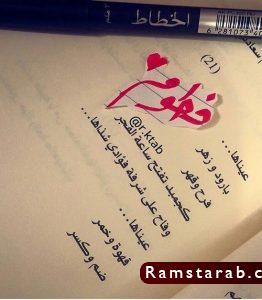 الخطاط
6281073
(21)
فطوم
@r.ktab
عيناها...
بارود و زهر
فرح وقهر
كجميد تفتح ساعة الفجر
وفاح على شرفة فؤادي شذاها...
عيناها...
قهوة وخمر
ضم وكسر
Ramstarab.c